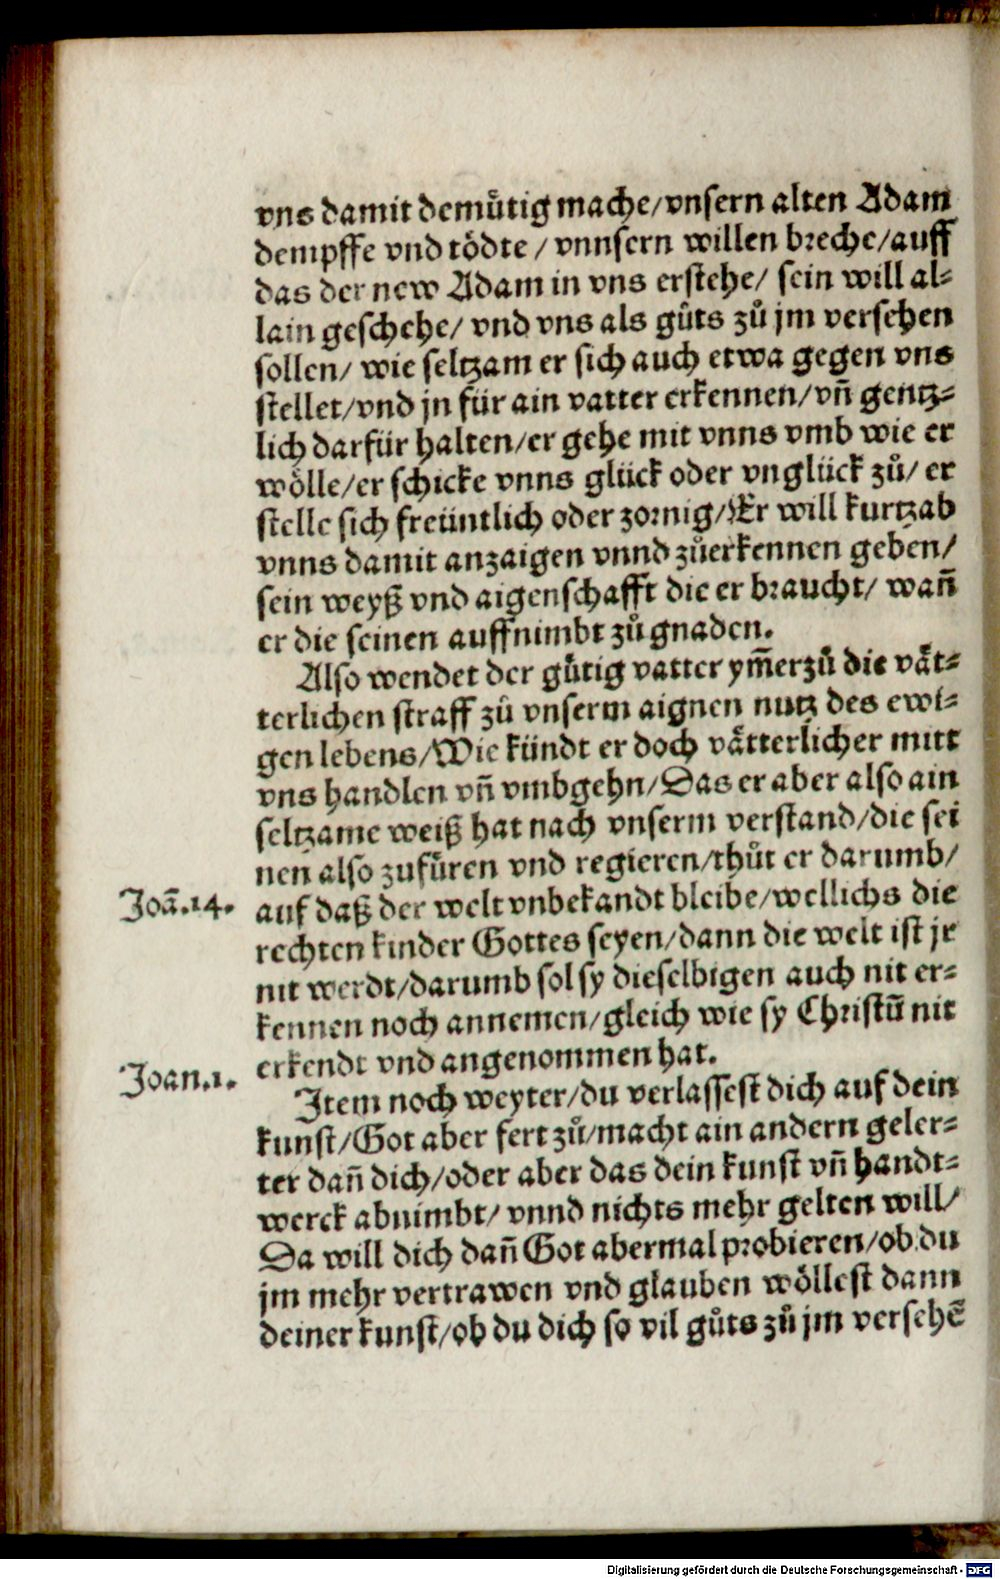 vns damit demuͤtig mache/vnsern alten Adam
dempffe vnd toͤdte / vnnsern willen breche/auff
das der new Adam in vns erstehe/ sein will al⸗
lain geschehe/ vnd vns als guͦts zuͦ jm versehen
sollen/ wie seltzam er sich auch etwa gegen vns
stellet/vnd jn für ain vatter erkennen/vñ gentz⸗
lich darfür halten/er gehe mit vnns vmb wie er
woͤlle/er schicke vnns glück oder vnglück zuͦ/ er
stelle sich freüntlich oder zornig/Er will kurtzab
vnns damit anzaigen vnnd zuͦerkennen geben/
sein weyß vnd aigenschafft die er braucht/ wañ
er die seinen auffnimbt zuͦ gnaden.
Also wendet der guͤtig vatter ym̃erzuͦ die vaͤt⸗
terlichen straff zuͦ vnserm aignen nutz des ewi⸗
gen lebens/Wie kündt er doch vaͤtterlicher mitt
vns handlen vñ vmbgehn/Das er aber also ain
seltzame weiß hat nach vnserm verstand/die sei
nen also zufuͤren vnd regieren/thuͦt er darumb/
Joã.14. auf daß der welt vnbekandt bleibe/wellichs die
rechten kinder Gottes seyen/dann die welt ist jr
nit werdt/darumb sol sy dieselbigen auch nit er⸗
kennen noch annemen/gleich wie sy Christũ nit
Joan.1. erkendt vnd angenommen hat.
Item noch weyter/du verlassest dich auf dein
kunst/Got aber fert zuͦ/macht ain andern geler⸗
ter dañ dich/oder aber das dein kunst vñ handt⸗
werck abnimbt/ vnnd nichts mehr gelten will/
Da will dich dañ Got abermal probieren/ob du
jm mehr vertrawen vnd glauben woͤllest dann
deiner kunst/ob du dich so vil guͦts zuͦ jm versehẽ
Digitalisierung gefördert durch die Deutsche Forschungsgemeinschaft - DFG